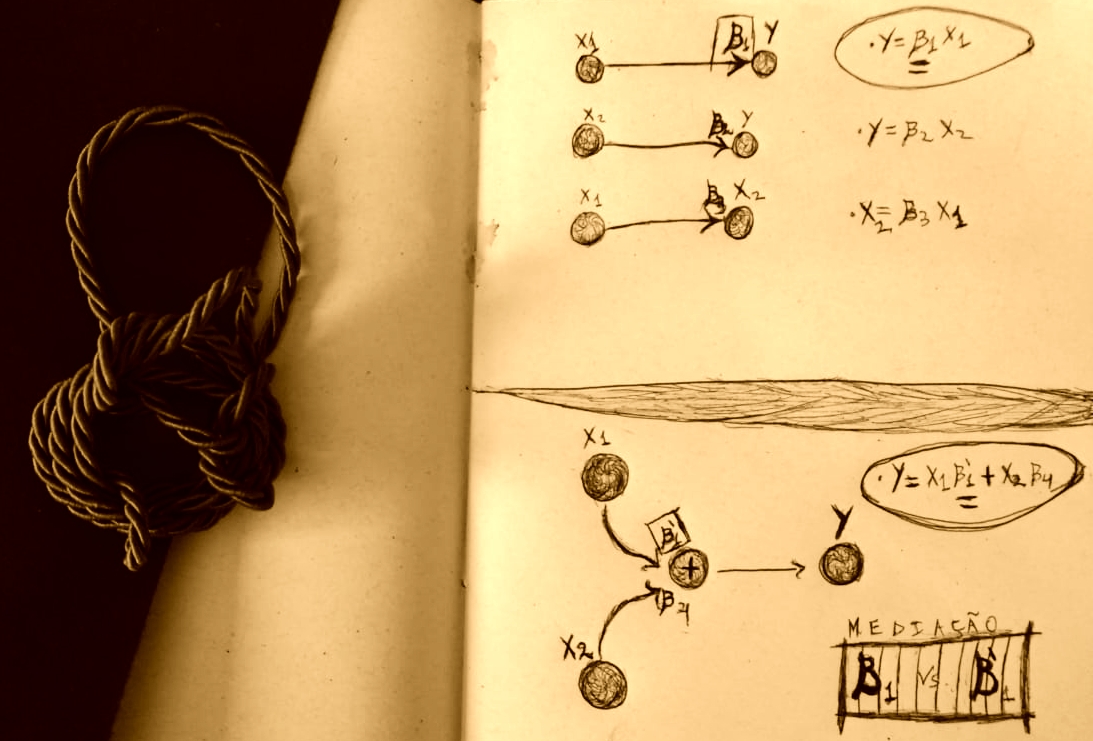 X1 B1 Y
· Y = B1 X1
X2 B2 Y
· Y = B2 X2
X1 B3 X2
· X2 = B3 X1
X1
· Y = X1 B`1 + X2 B4
B`1
Y
+
B4
X2
MEDIAÇÃO
B1 Vs. B`1